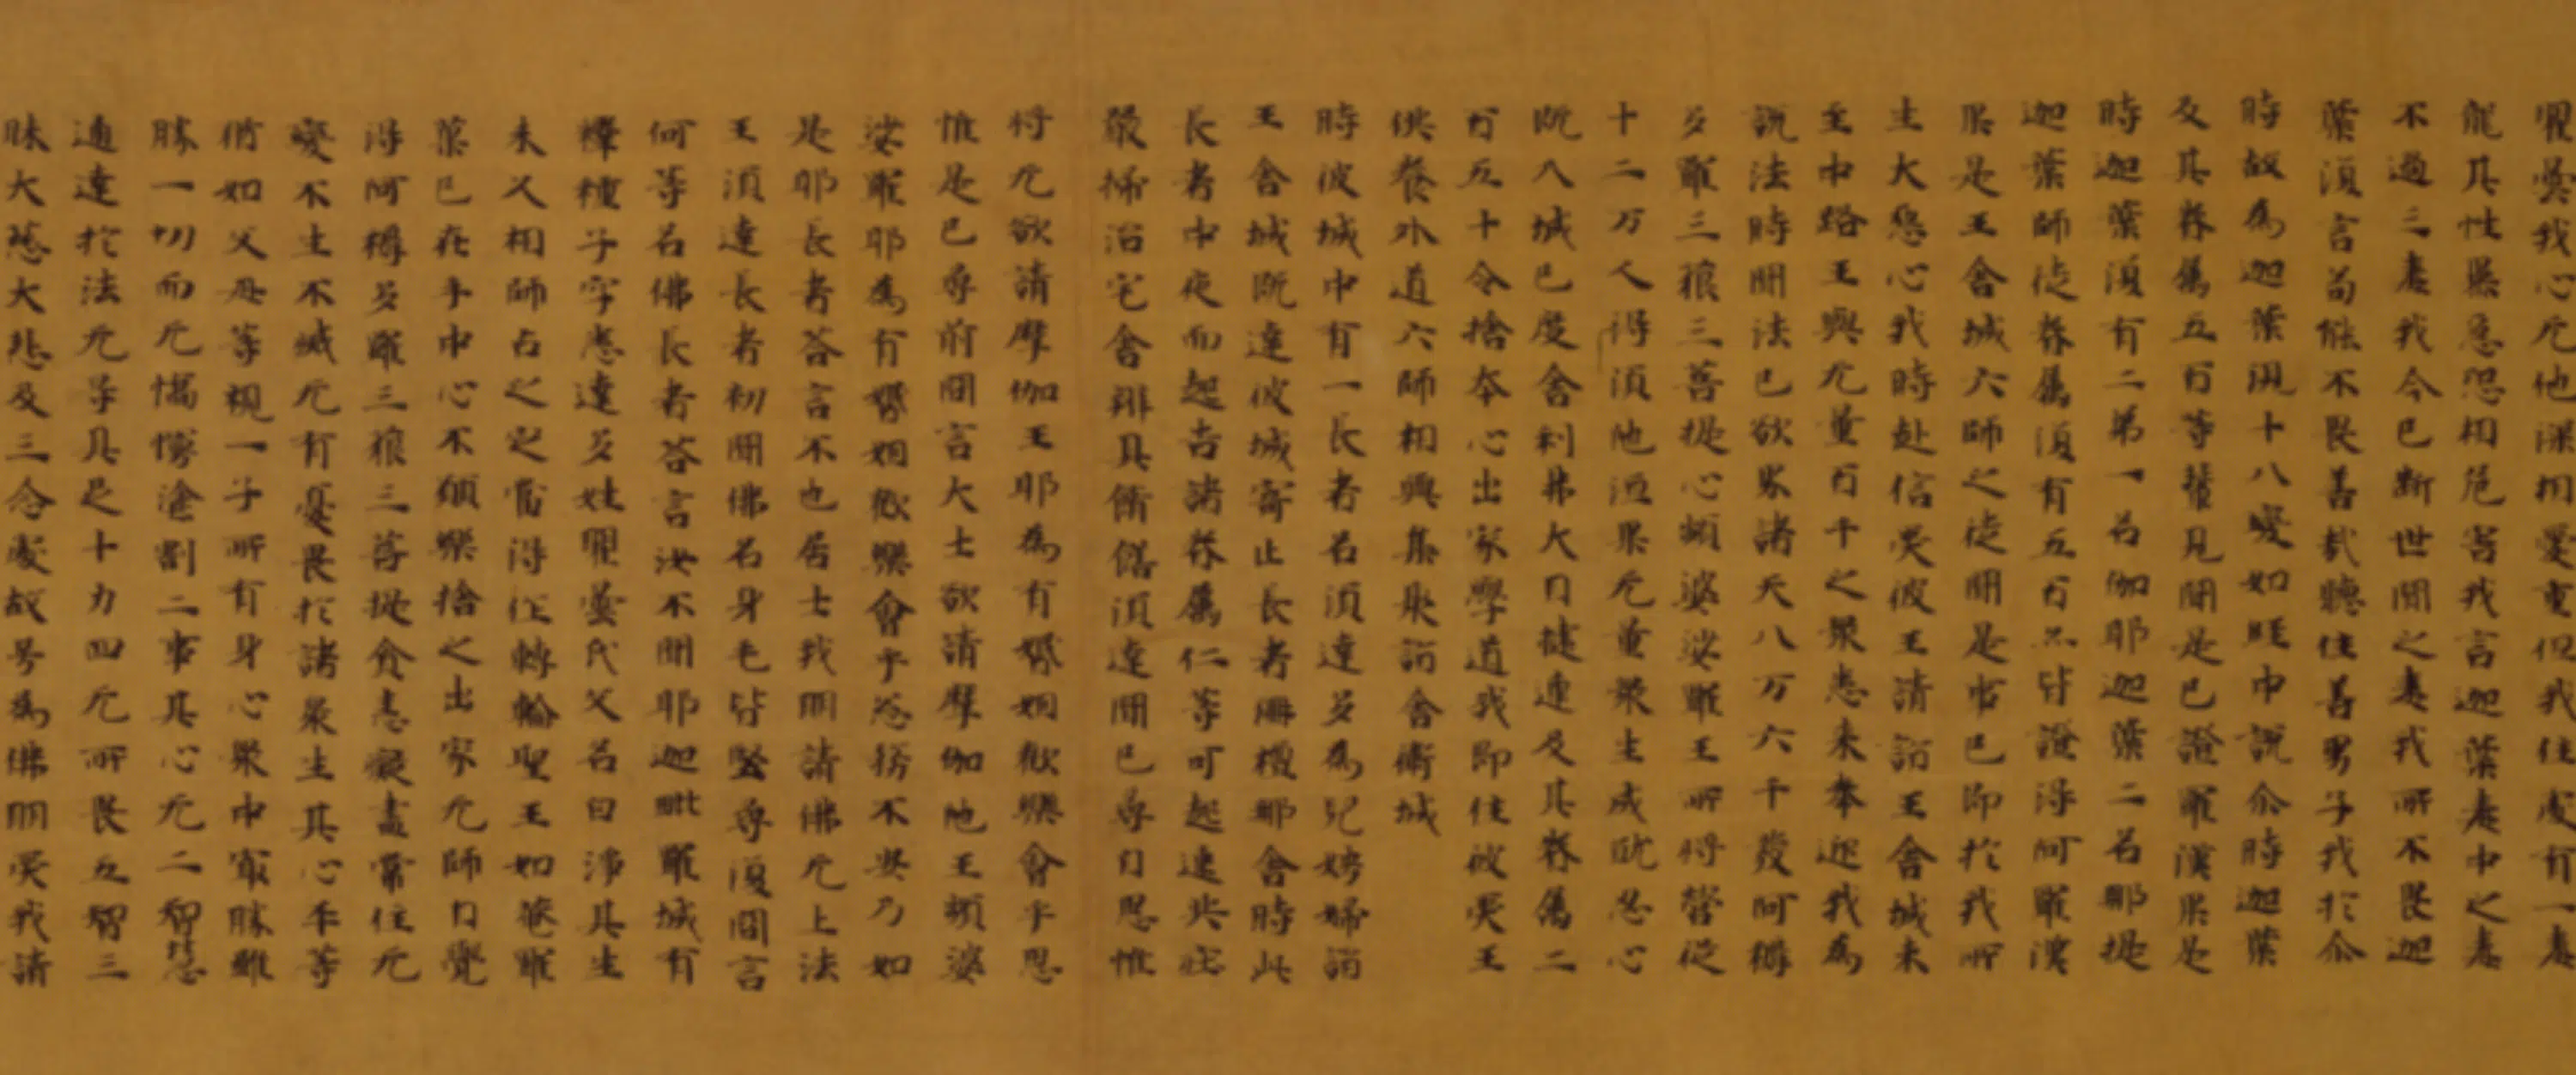 瞿曇我心无他深相愛重但我住處有一毒
龍其性暴急恐相危害我言迦葉毒中之毒
不過三毒我今已斷世間之毒我所不畏迦
葉復言苟能不畏善哉聽住善男子我於尒
時故為迦葉現十八變如經中說尒時迦葉
及其眷屬五百等輩見聞是已證羅漢果是
時迦葉復有二弟一名伽耶迦葉二名那提
迦葉師徒眷屬復有五百亦皆證得阿羅漢
果是王舍城六師之徒聞是事已即於我所
生大惡心我時赴信受彼王請詣王舍城未
至中路王與无量百千之眾悉來奉迎我為
說法時聞法已欲界諸天八万六千發阿耨
多羅三藐三菩提心頻婆娑羅王所將營從
十二万人得須陁洹果无量眾生成就忍心
既入城已度舍利弗大目揵連及其眷屬二
百五十令捨本心出家學道我即住彼受王
供養外道六師相與集聚詣舍衛城
時彼城中有一長者名須達多為兒娉婦詣
王舍城既達彼城寄止長者珊檀那舍時此
長者中夜而起告諸眷屬仁等可起速共莊
嚴掃治宅舍辦具餚饍須達聞已尋自思惟
將无欲請摩伽王耶為有婚姻歡樂會乎思
惟是已尋前問言大士欲請摩伽陁王頻婆
娑羅耶為有婚姻歡樂會乎怱務不安乃如
是耶長者答言不也居士我明請佛无上法
王須達長者初聞佛名身毛皆竪尋復問言
何等名佛長者答言汝不聞耶迦毗羅城有
釋種子字悉達多姓瞿曇氏父名曰淨其生
未久相師占之定當得作轉輪聖王如菴羅
菓已在手中心不願樂捨之出家无師自覺
得阿耨多羅三藐三菩提貪恚癡盡常住无
變不生不滅无有憂畏於諸眾生其心平等
猶如父母等視一子所有身心眾中最勝雖
勝一切而无憍慢塗割二事其心无二智慧
通達於法无㝵具足十力四无所畏五智三
昧大慈大悲及三念處故号為佛明受我請